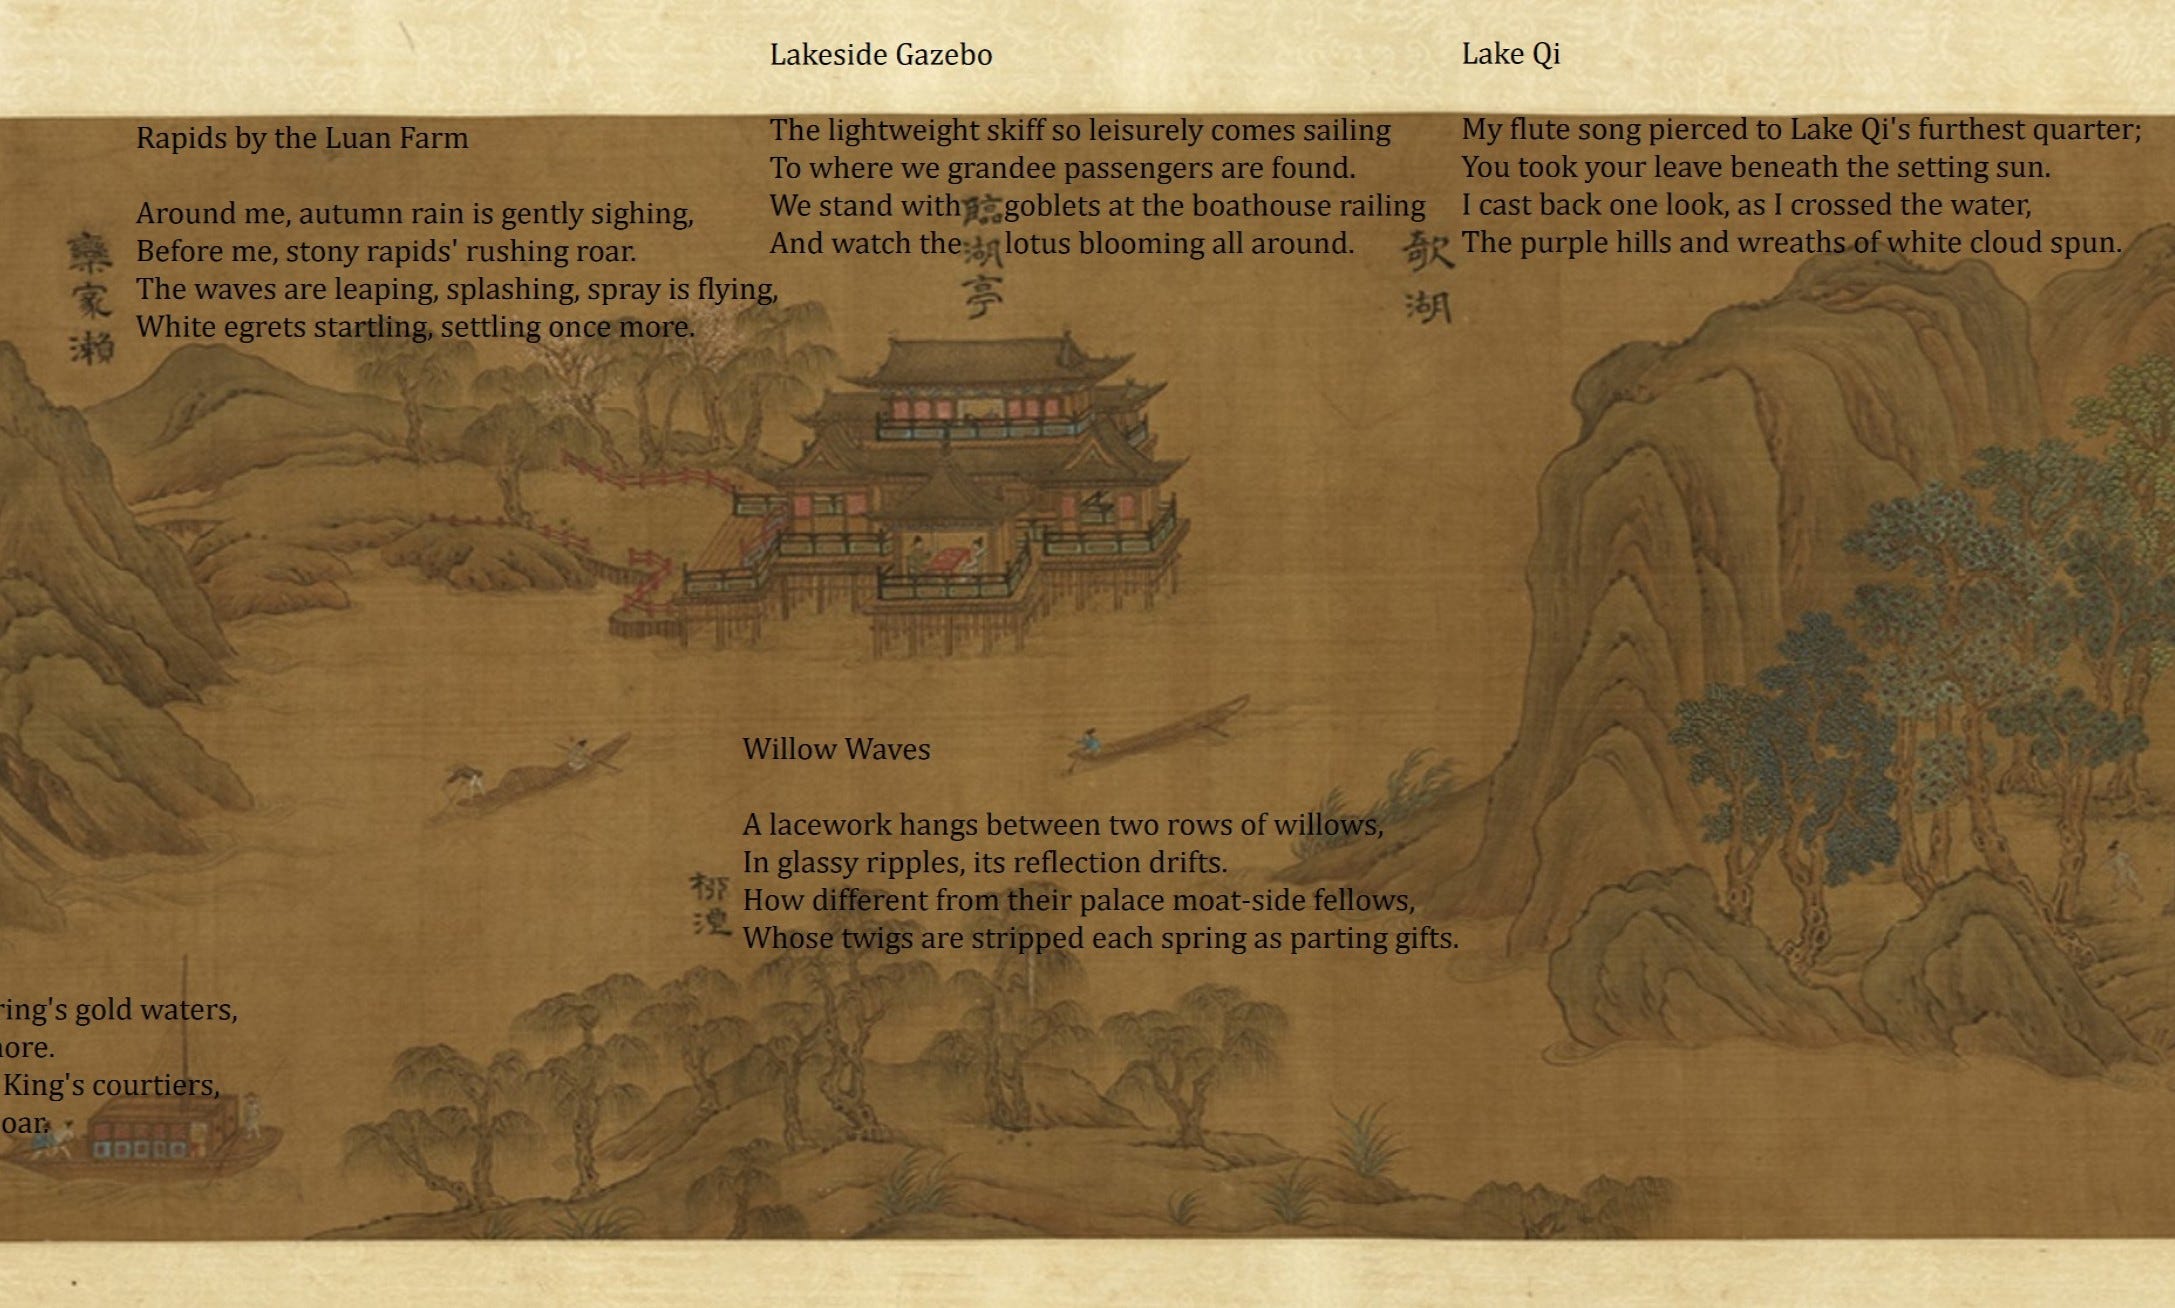 Lakeside Gazebo
The lightweight skiff so leisurely comes sailing
To where we grandee passengers are found.
We stand with goblets at the boathouse railing
And watch the lotus blooming all around.
臨湖亭
Lake Qi
My flute song pierced to Lake Qi's furthest quarter;
You took your leave beneath the setting sun.
I cast back one look, as I crossed the water,
The purple hills and wreaths of white cloud spun.
欹湖
Rapids by the Luan Farm
Around me, autumn rain is gently sighing,
Before me, stony rapids' rushing roar.
The waves are leaping, splashing, spray is flying,
White egrets startling, settling once more.
欒家瀨
Willow Waves
A lacework hangs between two rows of willows,
In glassy ripples, its reflection drifts.
How different from their palace moat-side fellows,
Whose twigs are stripped each spring as parting gifts.
柳浪
ring's gold waters,
ore.
King's courtiers,
oar.